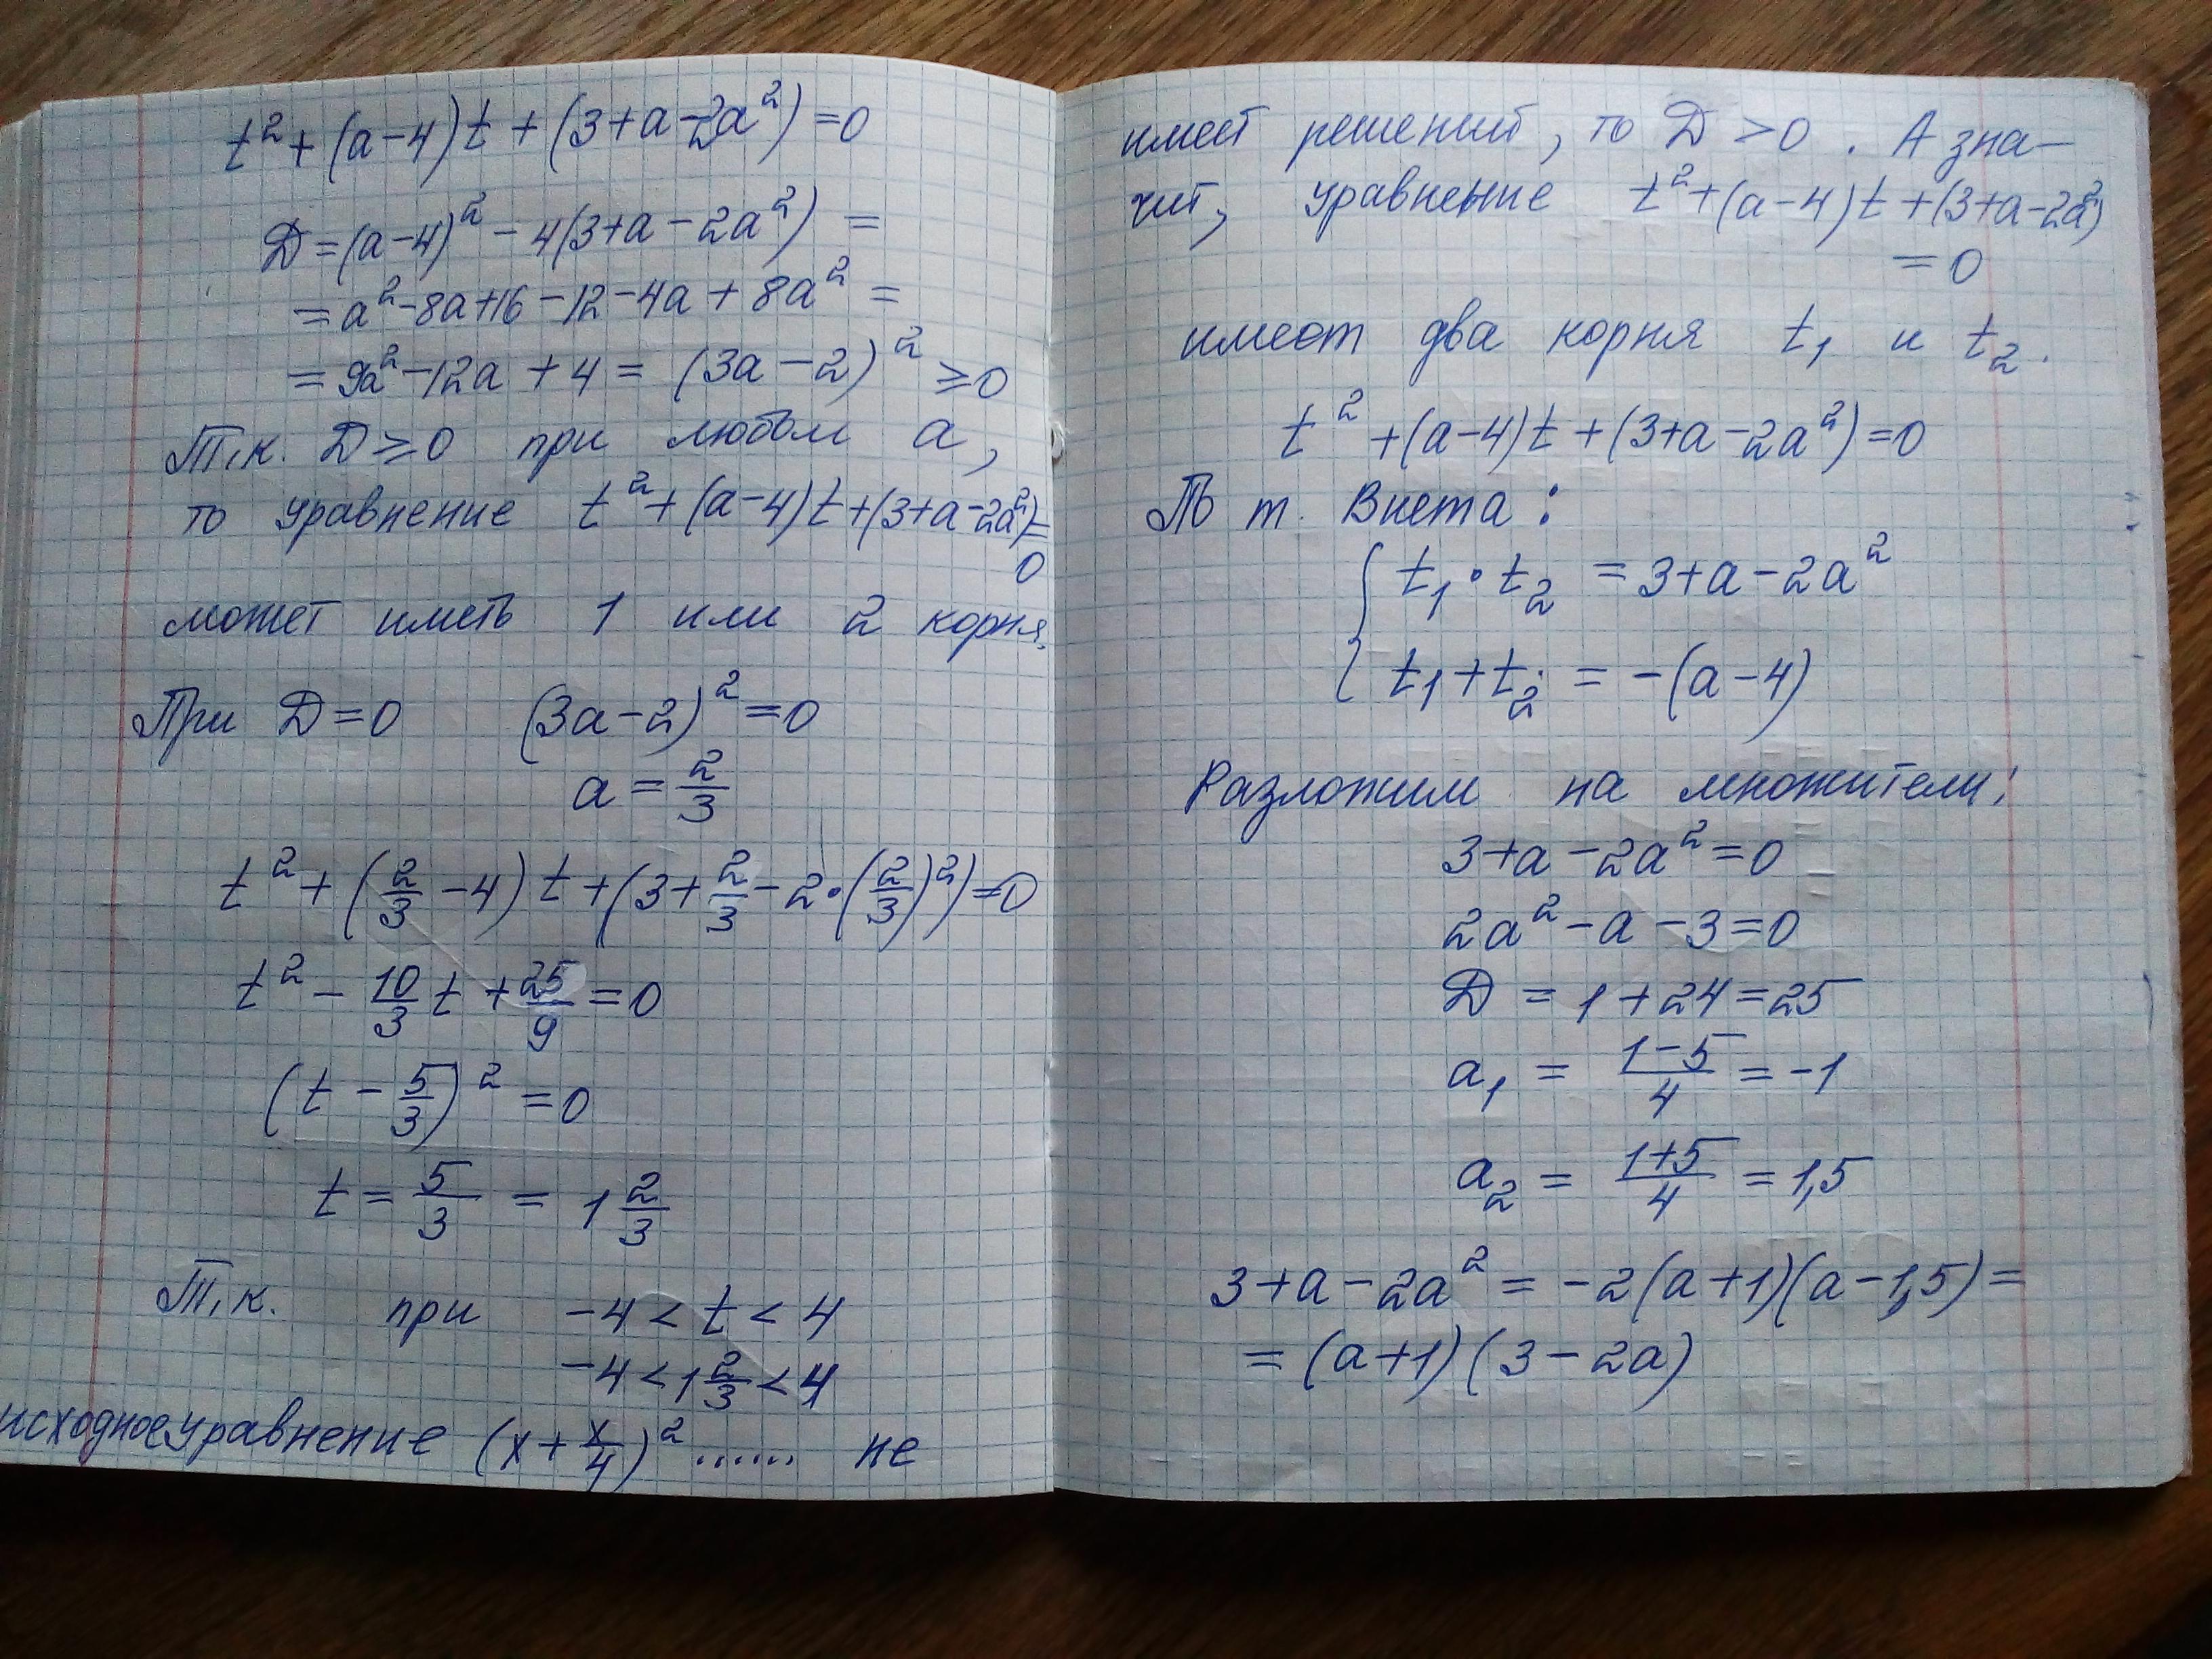 t² + (a−4)t + (3+a−2a²) = 0
D = (a−4)² − 4(3+a−2a²) =
= a² − 8a + 16 − 12 − 4a + 8a² =
= 9a² − 12a + 4 = (3a−2)² ≥ 0
Т.к. D ≥ 0 при любом a,
то уравнение t² + (a−4)t + (3+a−2a²) =
0
может иметь 1 или 2 корня.
При D = 0 (3a−2)² = 0
a = 2/3
t² + (2/3 − 4)t + (3 + 2/3 − 2·(2/3)²) = 0
t² − 10/3 t + 25/9 = 0
(t − 5/3)² = 0
t = 5/3 = 1 2/3
Т.к. при −4 < t < 4
−4 < 1 2/3 < 4
исходное уравнение (x + x/4)² ...... не
имеет решений, то D > 0. А зна−
чит, уравнение t² + (a−4)t + (3+a−2a²)
= 0
имеет два корня t₁ и t₂.
t² + (a−4)t + (3+a−2a²) = 0
По т. Виета:
{ t₁ · t₂ = 3+a−2a²
{ t₁ + t₂ = −(a−4)
Разложим на множители:
3+a−2a² = 0
2a² − a − 3 = 0
D = 1 + 24 = 25
a₁ = (1−5)/4 = −1
a₂ = (1+5)/4 = 1,5
3+a−2a² = −2(a+1)(a−1,5) =
= (a+1)(3−2a)